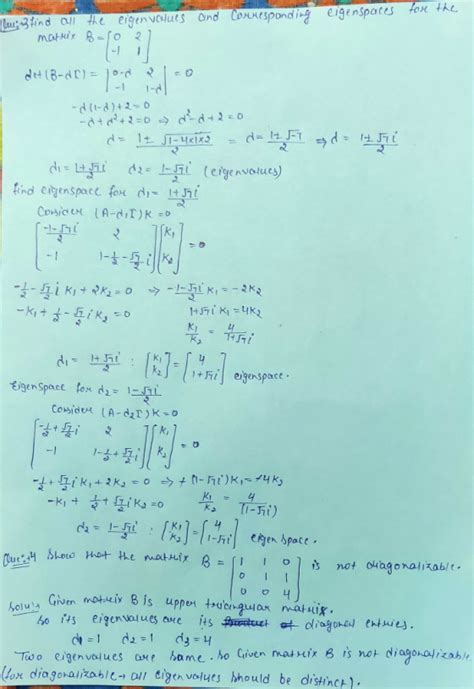 Ques:-3 find all the eigenvalues and Corresponding eigenspaces for the
matrix B = [0 2
-1 1]
det(B-dI) = |0-d 2
-1 1-d| = 0
-d(1-d)+2=0
-d+d²+2=0 ⇒ d²-d+2=0
d = (1±√(1-4×1×2))/2 = d = (1±√-7)/2 ⇒ d = (1±√7i)/2
d1 = (1+√7i)/2 d2 = (1-√7i)/2 (eigenvalues)
find eigenspace for d1 = (1+√7i)/2
Consider (A-d1I)K=0
[(-1-√7i)/2 2
-1 1-1/2-√7/2 i] [K1
K2] = 0
-1/2-√7/2 i K1 + 2K2 = 0 ⇒ -1-√7i K1 = -2K2
-K1 + 1/2-√7/2 i K2 = 0 1+√7i K1 = 4K2
K1/K2 = 4/(1+√7i)
d1 = (1+√7i)/2 : [K1
K2] = [4
1+√7i] eigenspace.
Eigenspace for d2 = (1-√7i)/2
Consider (A-d2I)K=0
[-1/2+√7/2 i 2
-1 1-1/2+√7/2 i] [K1
K2] = 0
-1/2+√7/2 i K1 + 2K2 = 0 ⇒ +(1-√7i)K1 = +4K2
-K1 + 1/2+√7/2 i K2 = 0 K1/K2 = 4/(1-√7i)
d2 = (1-√7i)/2 : [K1
K2] = [4
1-√7i] eigen space.
Ques:-4 Show that the matrix B = [1 1 0
0 1 1
0 0 4] is not diagonalizable.
Solu:- Given matrix B is upper triangular matrix.
So its eigenvalues are its diagonal entries.
d1=1 d2=1 d3=4
Two eigenvalues are same. So Given matrix B is not diagonalizable
(for diagonalizable → all eigenvalues should be distinct).